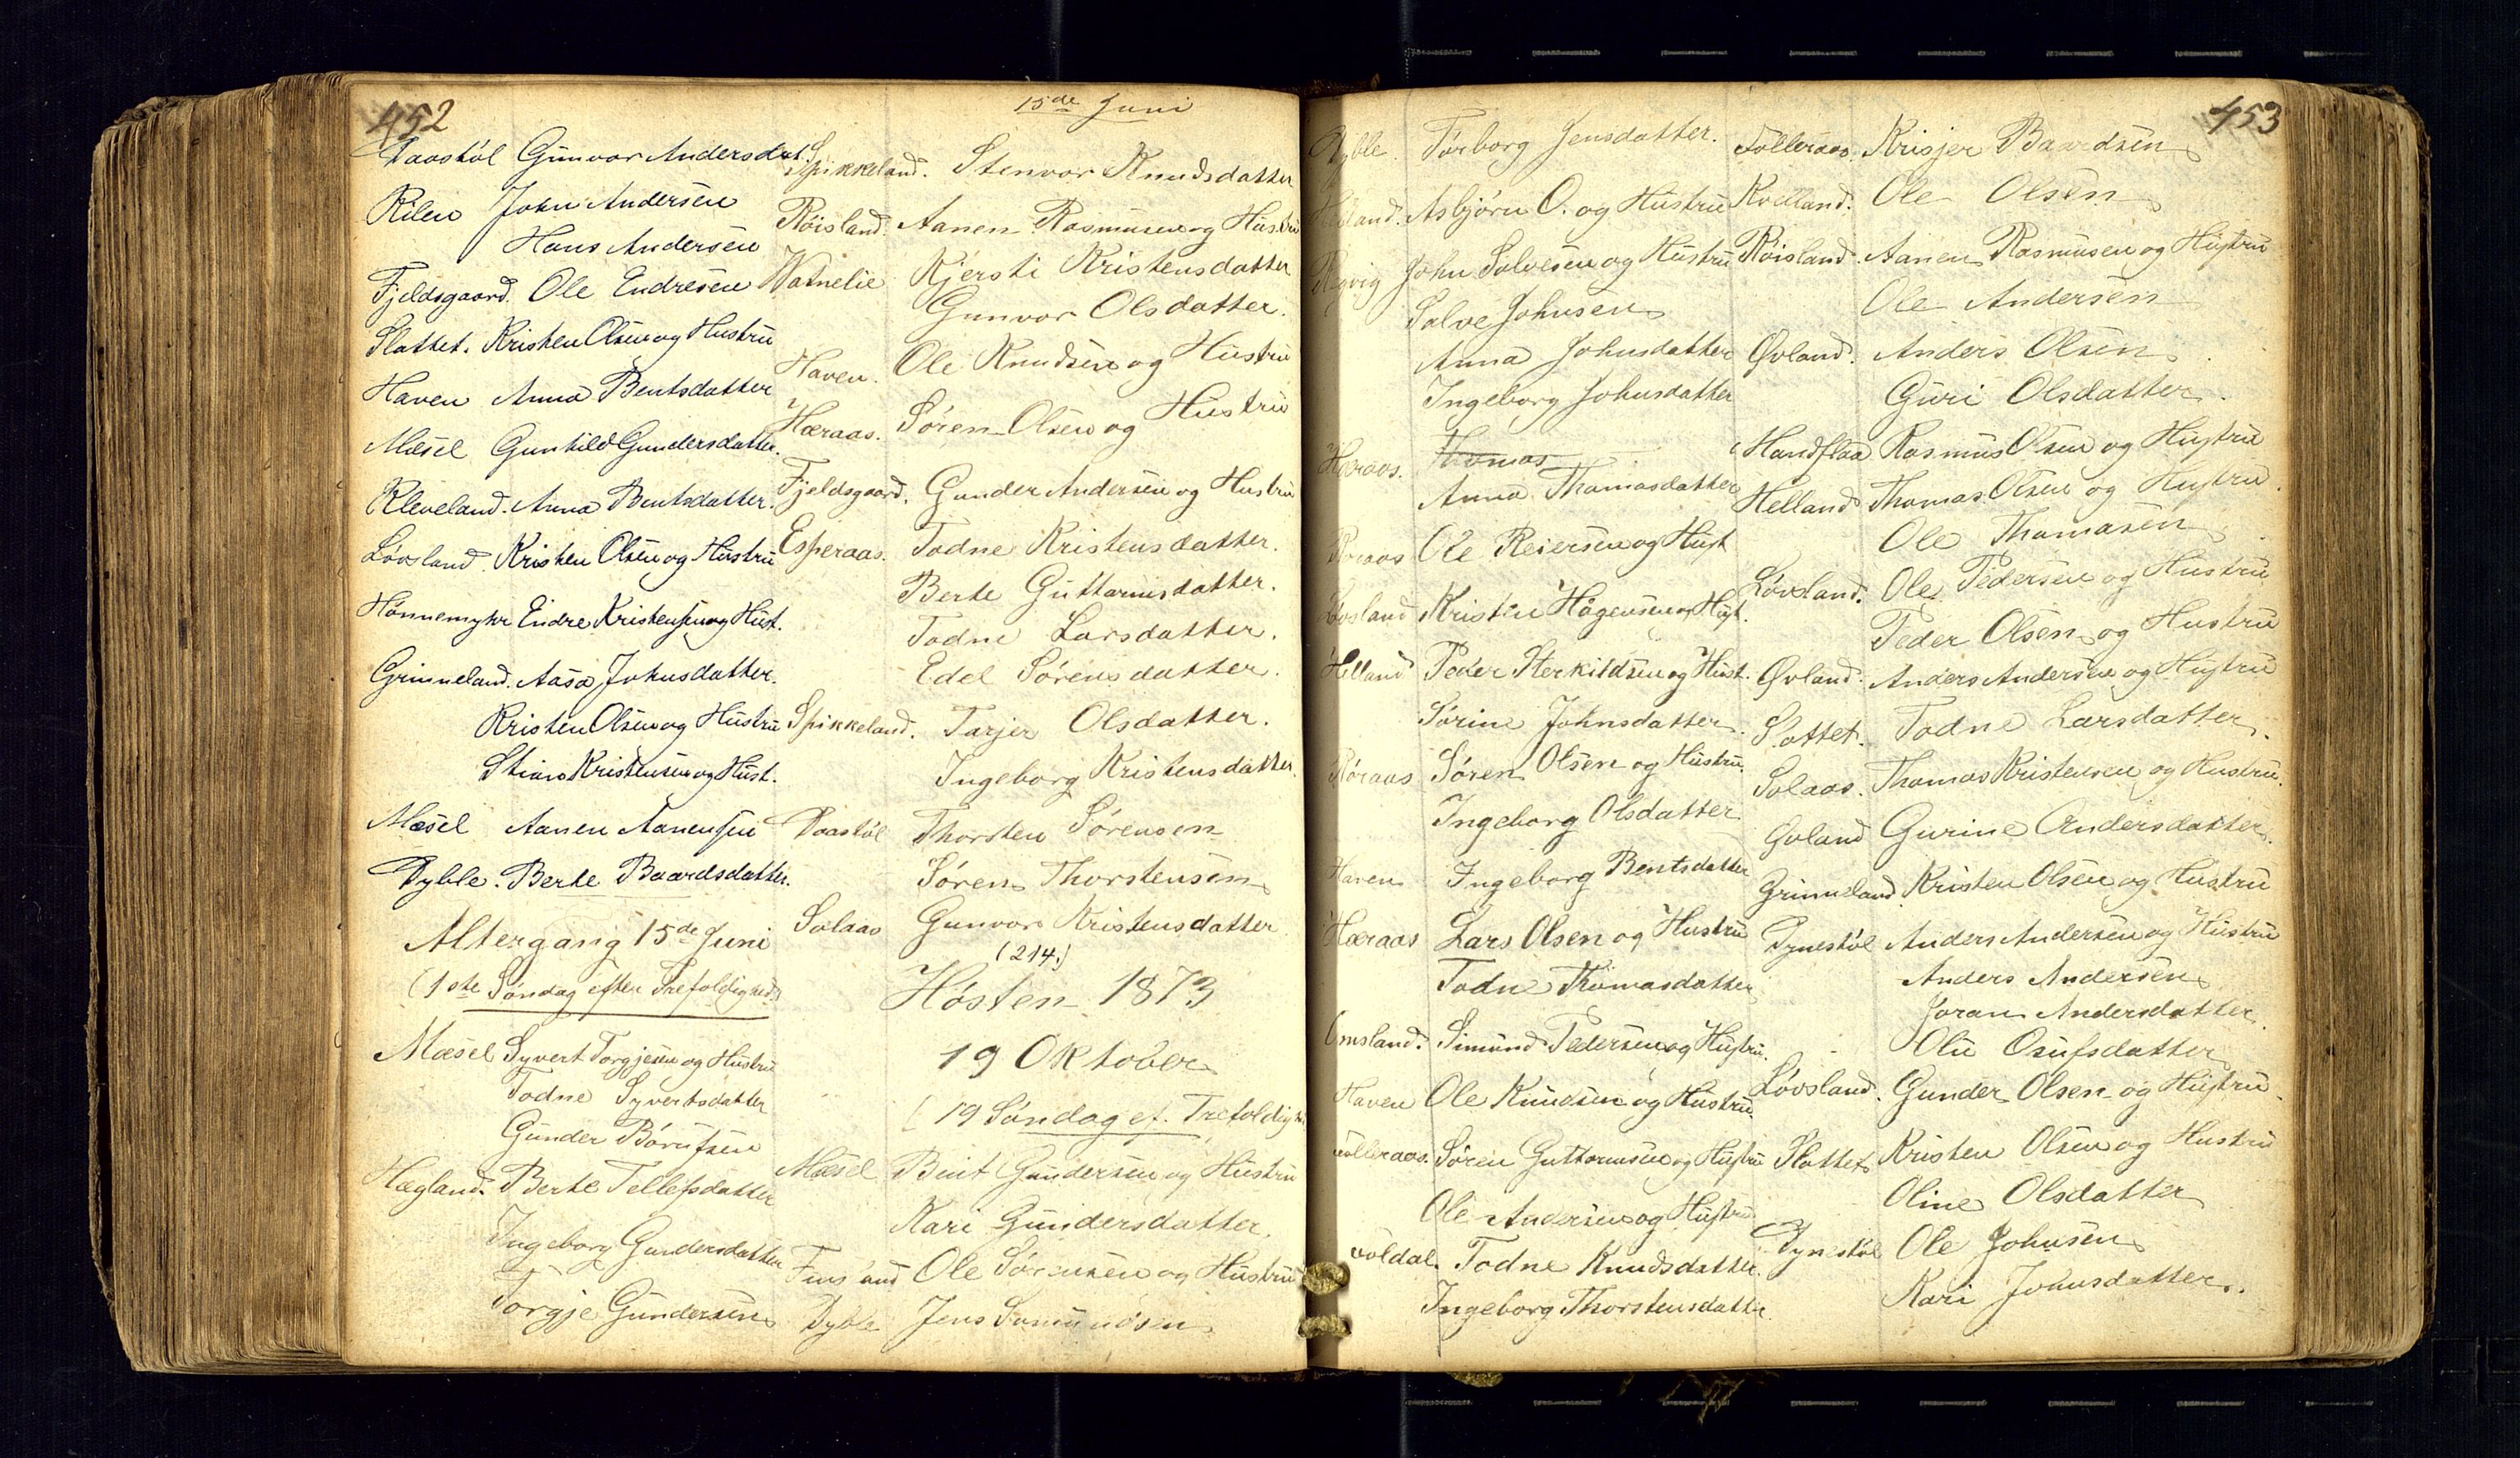 452
Daastöl Gunvor Andersdat.
Rilen John Andersen
Hans Andersen
Fjeldsgaard. Ole Endresen
Slottet. Kristen Olsen og Hustru
Haven Anna Bentsdatter
Mæsel Gunhild Gundersdatter.
Kleveland. Anna Bentsdatter.
Lövsland. Kristen Olsen og Hustru
Hönnemyhr Endre Kristensen og Hust.
Grimeland. Aasa Johnsdatter.
Kristen Olsen og Hustru
Stian Kristensen og Hust.
Mæsel Aanen Aanensen
Dyble. Berte Baardsdatter.
Altergang 15de Juni
(1ste Söndag efter Trefoldighed)
Mæsel Syvert Torgjesen og Hustru
Todne Syvertsdatter
Gunder Börufsen
Hægland. Berte Tellefsdatter
Ingeborg Gundersdatter
Torgje Gundersen
15de Juni
Spikkeland. Stenvor Knudsdatter
Röisland. Aanen Rasmusen og Hustru
Vatnelie Kjersti Kristensdatter
Gunvor Olsdatter.
Haven. Ole Knudsen og Hustru
Hæraas. Sören Olsen og Hustru
Fjeldsgaard. Gunder Andersen og Hustru
Esperaas. Todne Kristensdatter.
Berte Guttormsdatter.
Todne Larsdatter.
Edel Sörensdatter.
Spikkeland. Tarjer Olsdatter.
Ingeborg Kristensdatter.
Daastöl Thorsten Sörensen
Sören Thorstensen
Solaas Gunvor Kristensdatter
(214.)
Hösten 1873
19 Oktober
(19 Söndag ef. Trefoldigh
Mæsel Bent Gundersen og Hustru
Kari Gundersdatter.
Finsland Ole Sörensen og Hustru
Dyble Jens Samundsen
453
Dyble. Torborg Jensdatter.
Asbjörn O. og Hustru
John Salvesen og Hustru
Salve Johnsen
Anna Johnsdatter
Ingeborg Johnsdatter
Hæraas. Thomas
Anna Thomasdatter
Ole Reiersen og Hust
Lövsland Kristen Hågensen og Hust.
Helland Peder Sterkildsen og Hust.
Sörine Johnsdatter.
Röraas Sören Olsen og Hustru.
Ingeborg Olsdatter
Haven Ingeborg Bentsdatter
Hæraas Lars Olsen og Hustru
Todne Thomasdatter
Omsland. Simund Pedersen og Hustru.
Haven Ole Knudsen og Hustru.
Folleraas. Sören Guttormsen og Hustru
Ole Andersen og Hustru
voldal. Todne Knudsdatter.
Ingeborg Thorstensdatter.
Folleraas. Krisjer Baardsen
Kvelland. Ole Olsen
Röisland. Aanen Rasmusen og Hustru
Ole Andersen
Øvland. Anders Olsen
Guri Olsdatter.
Handflaa Rasmus Olsen og Hustru
Helland Thomas Olsen og Hustru.
Ole Thomasen
Lövsland. Ole Pedersen og Hustru
Peder Olsen og Hustru
Øvland. Anders Andersen og Hustru
Slottet. Todne Larsdatter.
Solaas. Thomas Kristensen og Hustru.
Øvland Gurine Andersdatter.
Grimeland Kristen Olsen og Hustru
Dynestöl Anders Andersen og Hustru
Anders Andersen
Joran Andersdatter.
Olu Osufsdatter
Lövsland. Gunder Olsen og Hustru.
Slottet Kristen Olsen og Hustru
Oline Olsdatter
Dynestöl Ole Johnsen
Kari Johnsdatter.